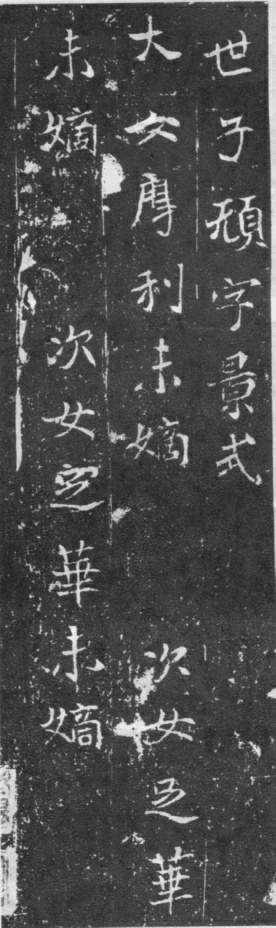 世子字景式
大女利未嫡 次女華
未嫡 次女華未嫡